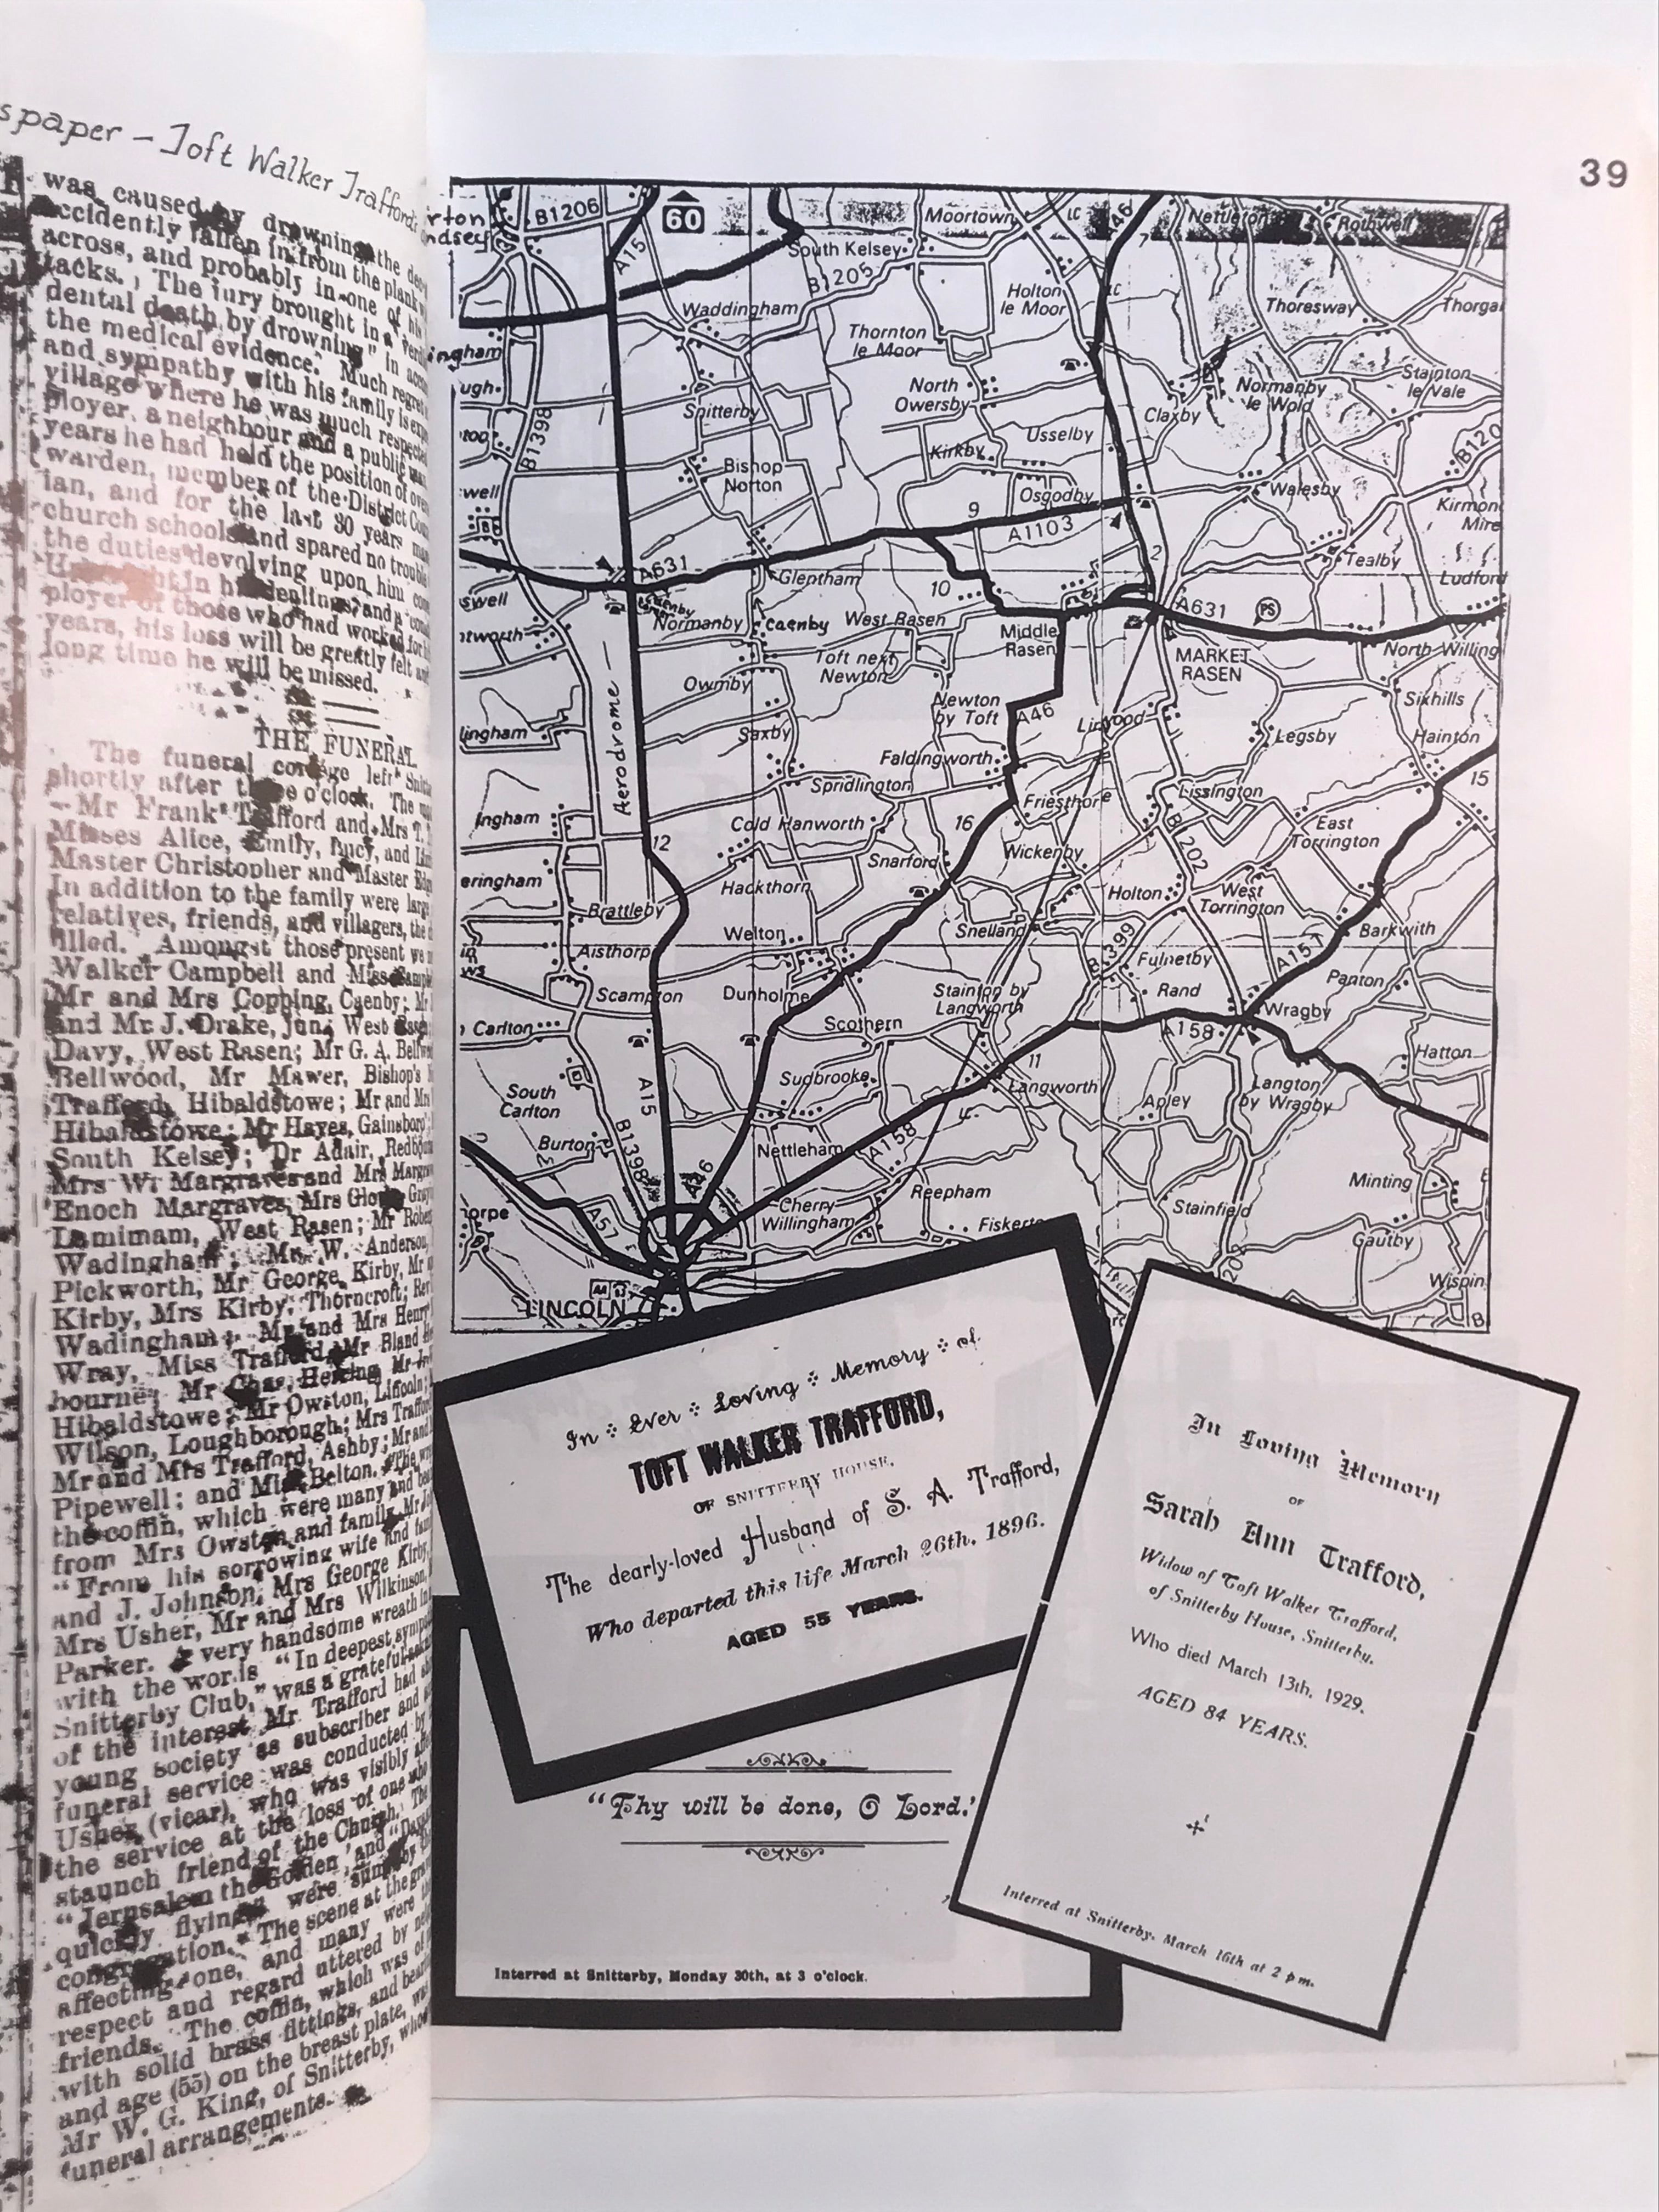 spaper - Toft Walker Trafford's
was caused by drowning, the
accidently fallen in from the plank
across, and probably in one of his
tacks. The jury brought in a
dental death by drowning" in
the medical evidence. Much regret
and sympathy with his family is
village where he was much respected
ployer, a neighbour and a public man
years he had held the position of
warden, member of the District
ian, and for the last 30 years
church schools and spared no trouble
the duties devolving upon him
in his dealings, and a
ployer of those who had worked for
years, his loss will be greatly felt and
long time he will be missed.
THE FUNERAL
The funeral cortege left
shortly after three o'clock. The
—Mr Frank Trafford and Mrs T.
Misses Alice, Emily, Lucy, and
Master Christopher and Master
In addition to the family were large
relatives, friends, and villagers, the
filled. Amongst those present
Walker Campbell and Miss
Mr and Mrs Copping, Caenby; Mr
and Mr J. Drake, jun., West
Davy, West Rasen; Mr G. A.
Bellwood, Mr Mawer, Bishop's
Trafford, Hibaldstowe; Mr and Mrs
Hibaldstowe; Mr Hayes, Gainsboro'
South Kelsey; Dr Adair,
Mrs W. Margraves and Mrs
Enoch Margraves, Mrs
Lamimam, West Rasen; Mr
Wadingham; Mr W. Anderson,
Pickworth, Mr George Kirby, Mr
Kirby, Mrs Kirby, Thorncroft;
Wadingham; Mr and Mrs Henry
Wray, Miss Trafford, Mr Bland
bourne; Mr Chas. Herring,
Hibaldstowe; Mr Owston, Lincoln;
Wilson, Loughborough; Mrs
Mr and Mrs Trafford, Ashby; Mr and
Pipewell; and Miss Belton. The
the coffin, which were many and
from Mrs Owston and family, Mr
"From his sorrowing wife and
and J. Johnson, Mrs George Kirby,
Mrs Usher, Mr and Mrs Wilkinson,
Parker. A very handsome wreath
with the words "In deepest
Snitterby Club," was a grateful
of the interest Mr. Trafford had
young society as subscriber and
funeral service was conducted by
Usher (vicar), who was visibly
the service at the loss of one who
staunch friend of the Church. The
"Jerusalem the Golden" and
quickly flying" were sung by the
congregation. The scene at the
affecting one, and many were the
respect and regard uttered by
friends. The coffin, which was of
with solid brass fittings, and
and age (55) on the breast plate, was
Mr W. G. King, of Snitterby, who
funeral arrangements.
39
B1206
A15
60
Moortown
LC
A46
7
Nettleton
Rothwell
South Kelsey
B1205
Waddingham
Holton
le Moor
LC
Thoresway
Thornton
le Moor
Snitterby
North
Owersby
Claxby
Normanby
le Wold
Stainton
le Vale
B1398
Bishop
Norton
Kirkby
Usselby
Osgodby
Walesby
Kirmond
Mire
9
A1103
2
Tealby
A631
Glentham
10
Ludford
Normanby
Caenby
West Rasen
Middle
Rasen
A631
PS
Toft next
Newton
MARKET
RASEN
North Willing
Owmby
Newton
by Toft
A46
Linwood
Sixhills
Saxby
Aerodrome
Faldingworth
Legsby
Hainton
15
Spridlington
Friesthorpe
Lissington
Ingham
12
Cold Hanworth
16
Wickenby
B1202
East
Torrington
Snarford
Hackthorn
Holton
West
Torrington
Brattleby
Snelland
Welton
B1399
Barkwith
Aisthorp
Fulnetby
A157
Panton
Scampton
Dunholme
Stainton by
Langworth
Rand
Wragby
Carlton
Scothern
A158
11
Hatton
South
Carlton
Sudbrooke
Langworth
Apley
Langton
by Wragby
A15
LC
Burton
B1398
A46
Nettleham
A158
Minting
Cherry
Willingham
Reepham
Fiskerton
Stainfield
A57
Gautby
AA
Wispin
LINCOLN
In Ever Loving Memory of
TOFT WALKER TRAFFORD,
OF SNITTERBY HOUSE,
The dearly-loved Husband of S. A. Trafford,
Who departed this life March 26th, 1896.
AGED 55 YEARS.
"Thy will be done, O Lord.'
Interred at Snitterby, Monday 30th, at 3 o'clock.
In Loving Memory
OF
Sarah Ann Trafford,
Widow of Toft Walker Trafford,
of Snitterby House, Snitterby.
Who died March 13th, 1929.
AGED 84 YEARS.
Interred at Snitterby, March 16th at 2 p m.